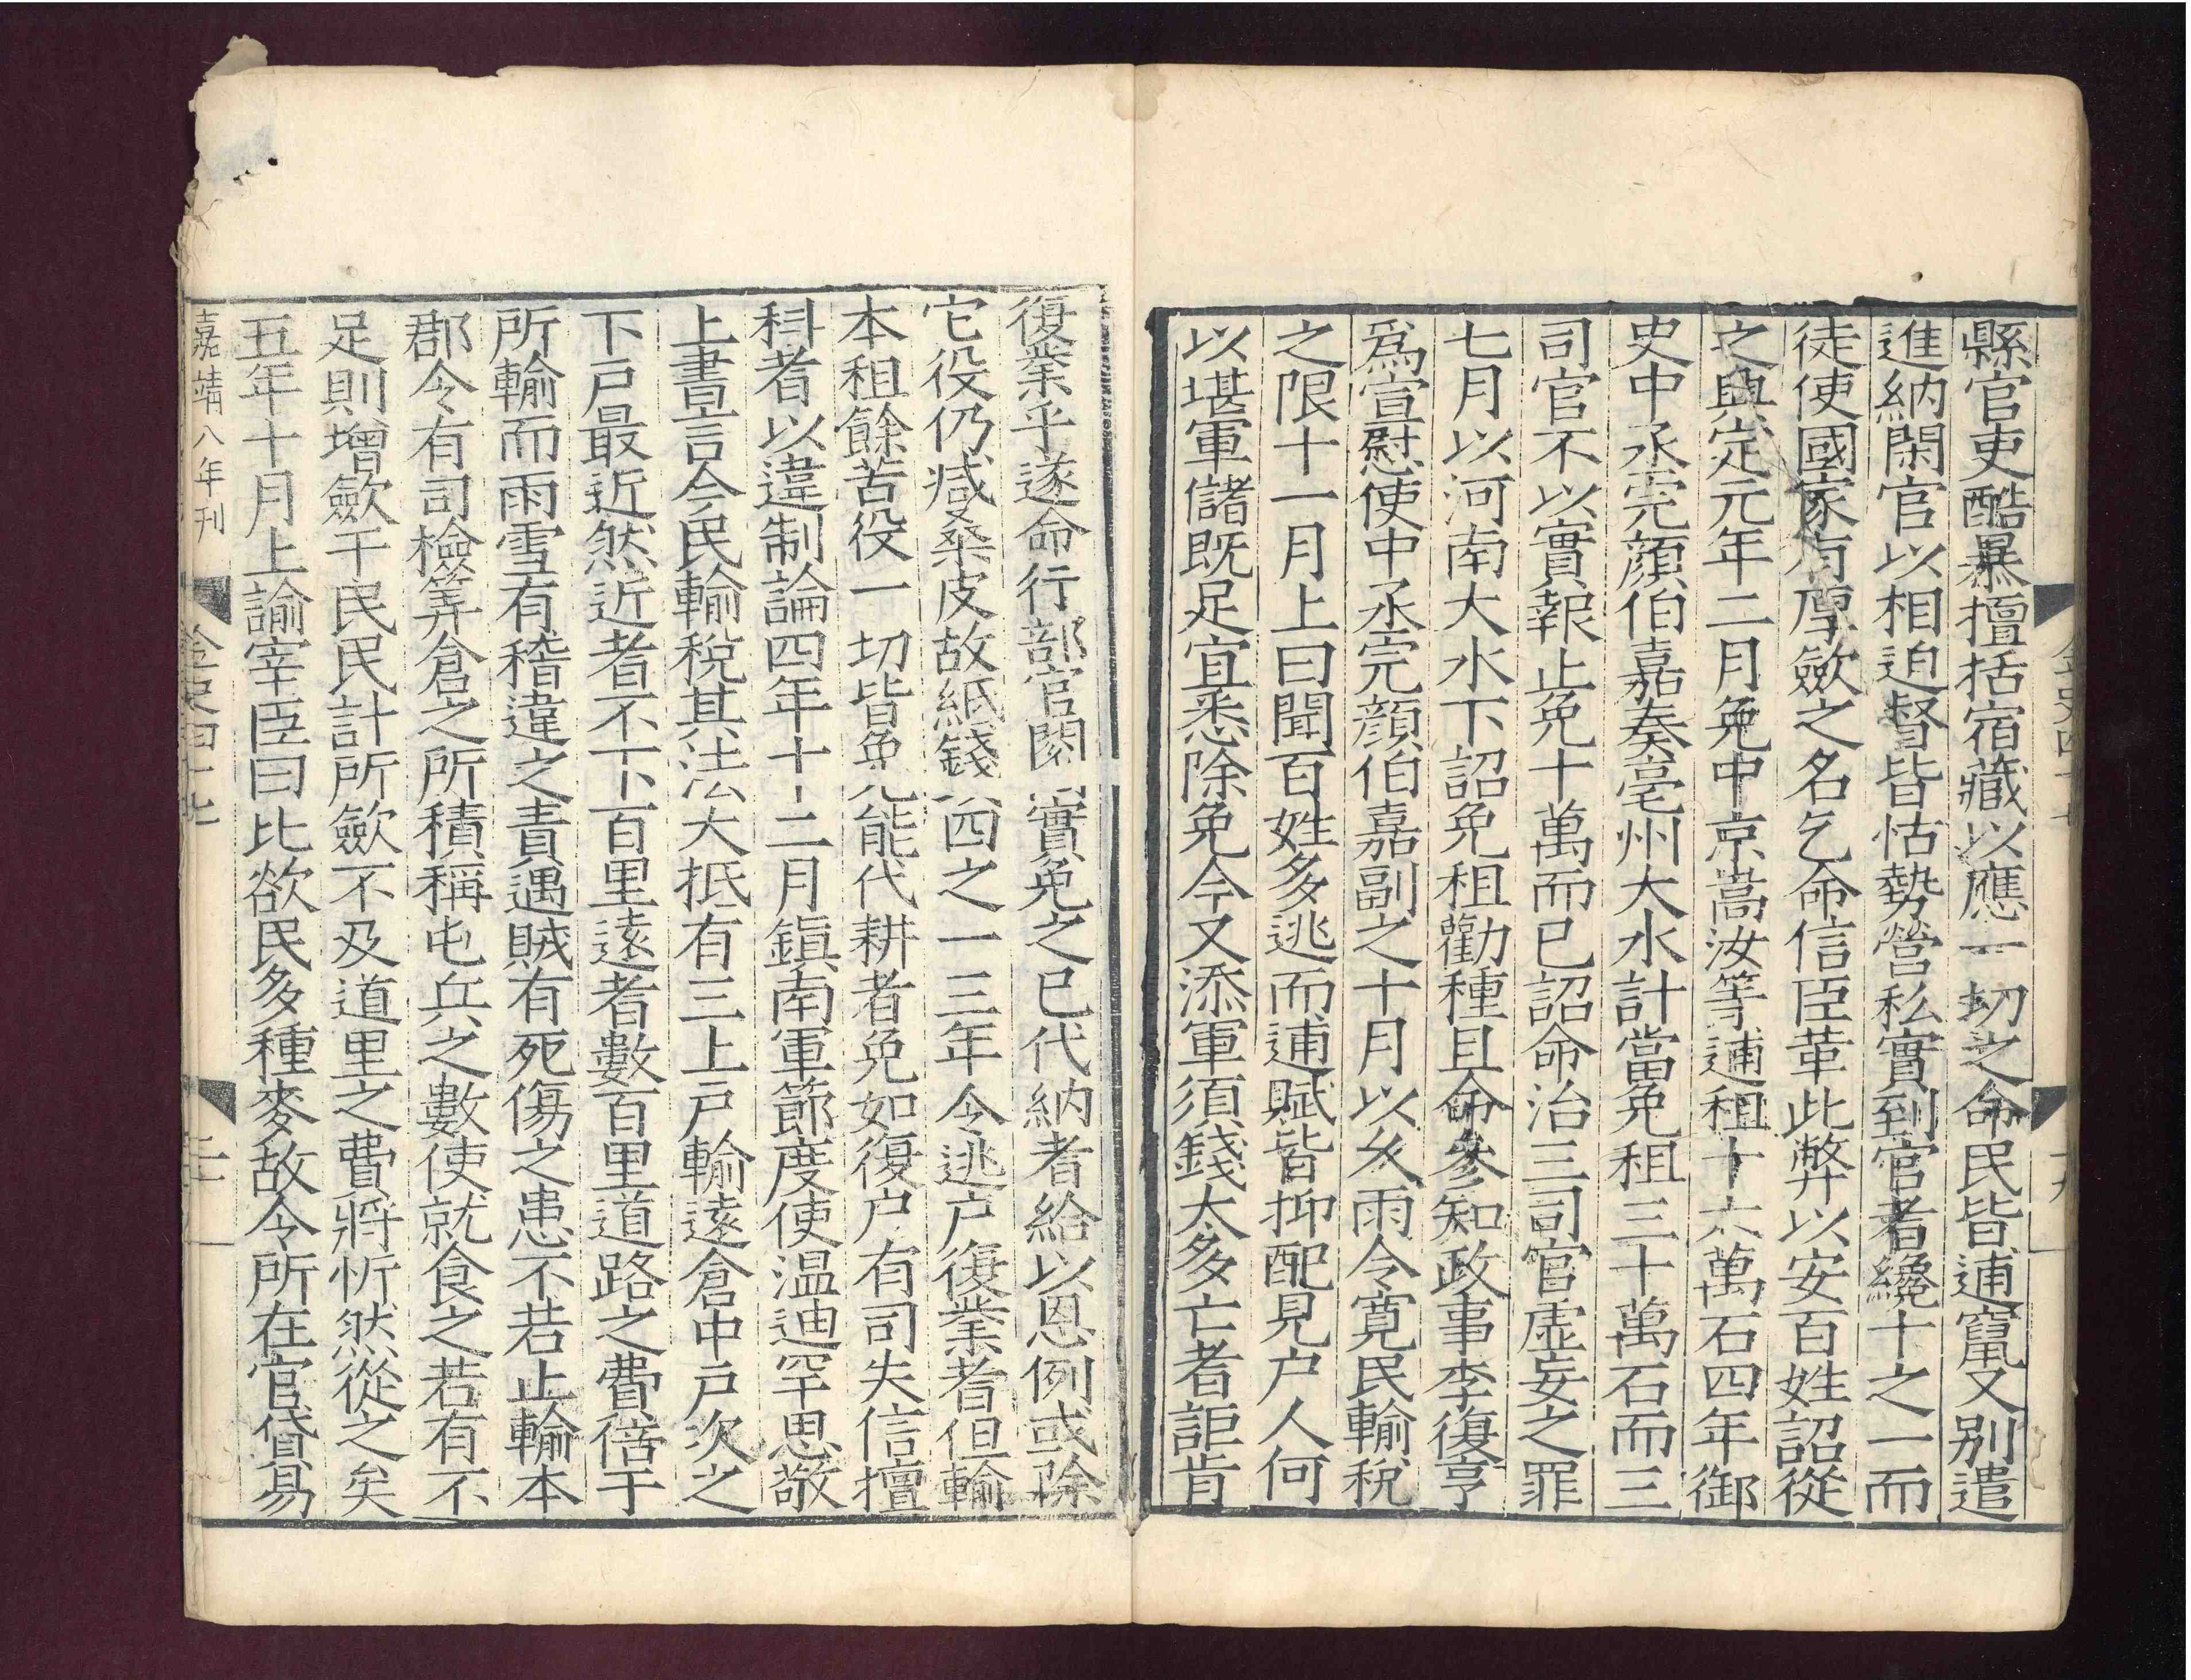 縣官吏酷暴擅括宿藏以應一切之命民皆逋竄又別遣
進納閑官以相迫督皆怙勢營私實到官者纔十之一而
徒使國家有厚歛之名乞命信臣革此弊以安百姓詔從
之興定元年二月免中京嵩汝等逋租十六萬石四年御
史中丞完顔伯嘉奏亳州大水計當免租三十萬石而三
司官不以實報止免十萬而已詔命治三司官虛妄之罪
七月以河南大水下詔免租勸種且命參知政事李復亨
爲宣慰使中丞完顔伯嘉副之十月以久雨令寬民輸稅
之限十一月上曰聞百姓多逃而逋賦皆抑配見户人何
以堪軍儲既足宜悉除免今又添軍須錢太多亡者詎肯
復業乎遂命行部官閱實免之已代納者給以恩例或除
它役仍减桑皮故紙錢四之一三年令逃户復業者但輸
本租餘苦役一切皆免能代耕者免如復户有司失信擅
科者以違制論四年十二月鎮南軍節度使温迪罕思敬
上書言今民輸税其法大抵有三上户輸遠倉中户次之
下户最近然近者不下百里遠者數百里道路之費倍于
所輸而雨雪有稽違之責遇賊有死傷之患不若止輸本
郡令有司檢筭倉之所積稱屯兵之數使就食之若有不
足則增歛于民民計所歛不及道里之費將忻然從之矣
五年十月上諭宰臣曰比欲民多種麥故令所在官貸易
嘉靖八年刊